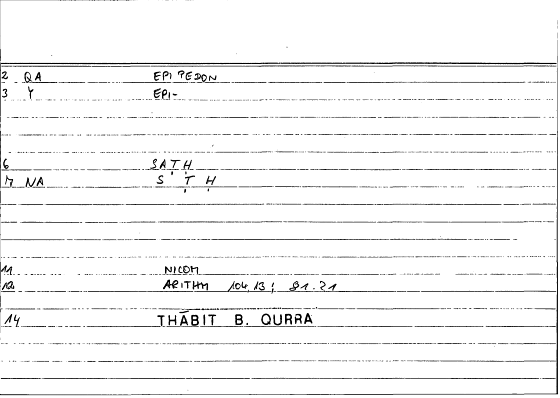 2 QA EPIPEDON
3 Y EPI-
6 SAṬḤ
7 NA S Ṭ Ḥ
11 NICOM
12 ARITHM 104,13; 81.21
14 THĀBIT B. QURRA